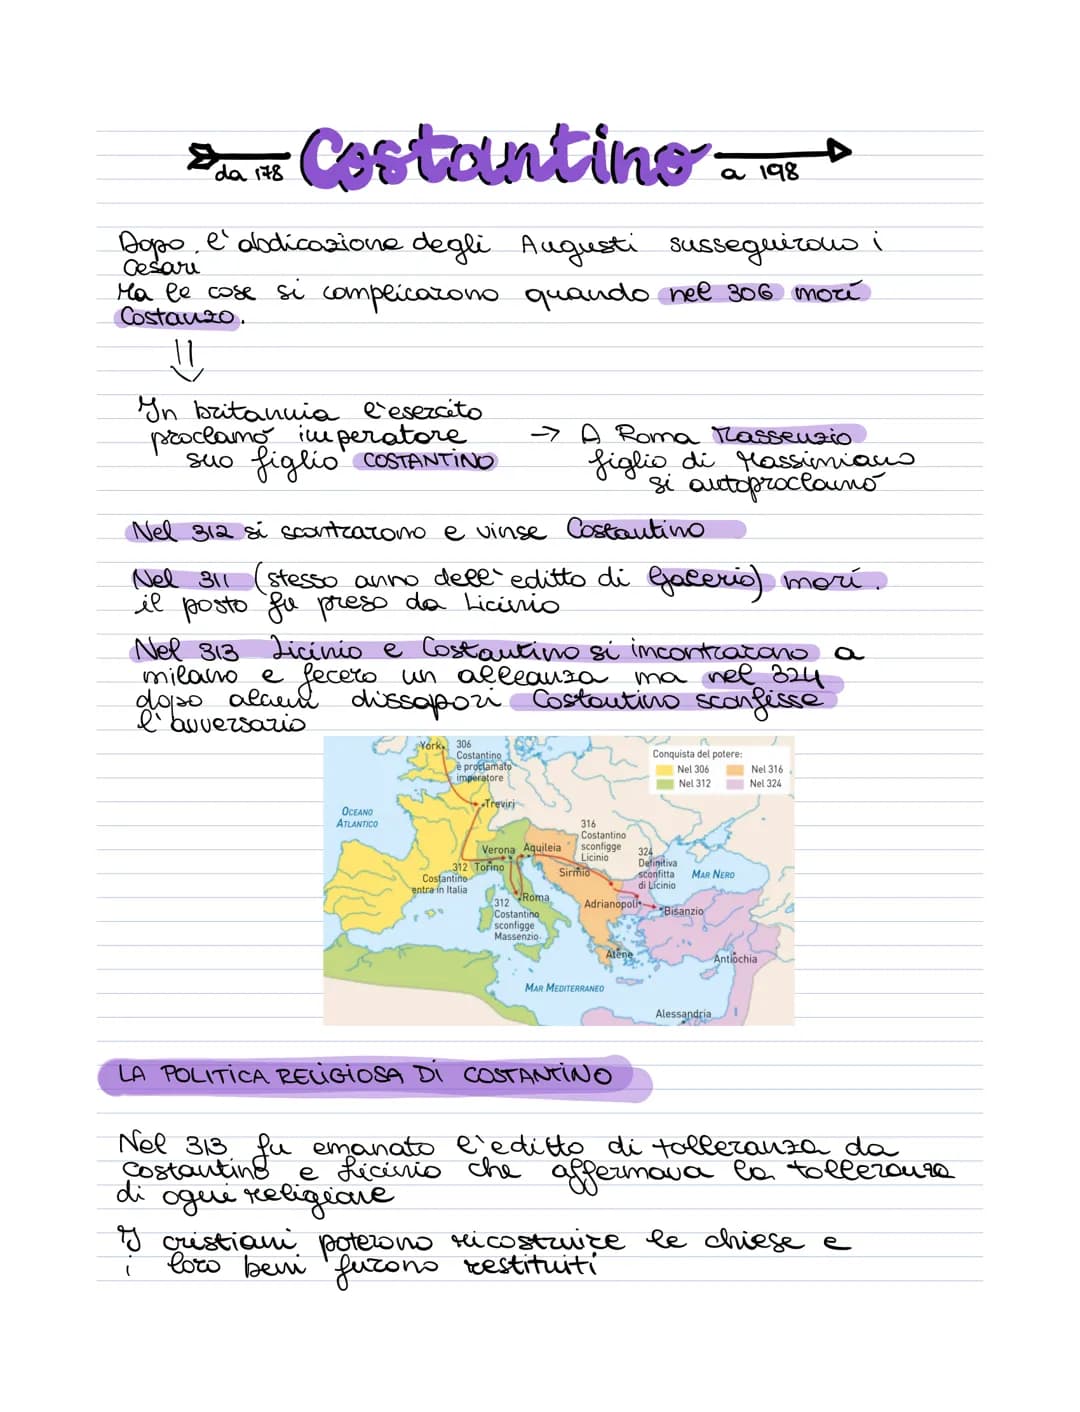 Costantino
da 178
a 198
Dopo l'abdicazione degli Augusti susseguirono i
Cesari
Ma le cose si complicarono quando nel 306 morí
Costanzo.
In britannia l'esercito
proclamó imperatore
suo figlio COSTANTINO
→ A Roma Massenzio
figlio di Massimiano
si autoproclamó
Nel 312 si scontrarono e vinse Costantino
Nel 311 (stesso anno dell'editto di Galerio) morí.
il posto fu preso da Licinio
Nel 313 Licinio e Costantino si incontrarono a
milano e fecero un alleanza ma nel 324
dopo alcuni dissapori Costantino sconfisse
l'avversario
York
306
Costantino
è proclamato
imperatore
Conquista del potere:
Nel 306
Nel 316
Nel 312
Nel 324
OCEANO
ATLANTICO
Treviri
316
Costantino
sconfigge
Licinio
Verona
Aquileia
324
Definitiva
sconfitta
di Licinio
312
Costantino
entra in Italia
Torino
Sirmio
MAR NERO
Roma
312
Costantino
sconfigge
Massenzio
Adrianopoli
Bisanzio
Atene
Antiochia
MAR MEDITERRANEO
Alessandria
LA POLITICA RELIGIOSA DI COSTANTINO
Nel 313 fu emanato l'editto di tolleranza da
Costantino e Licinio che affermava la tolleranza
di ogni religione
I cristiani poterono ricostruire le chiese e
i loro beni furono restituiti